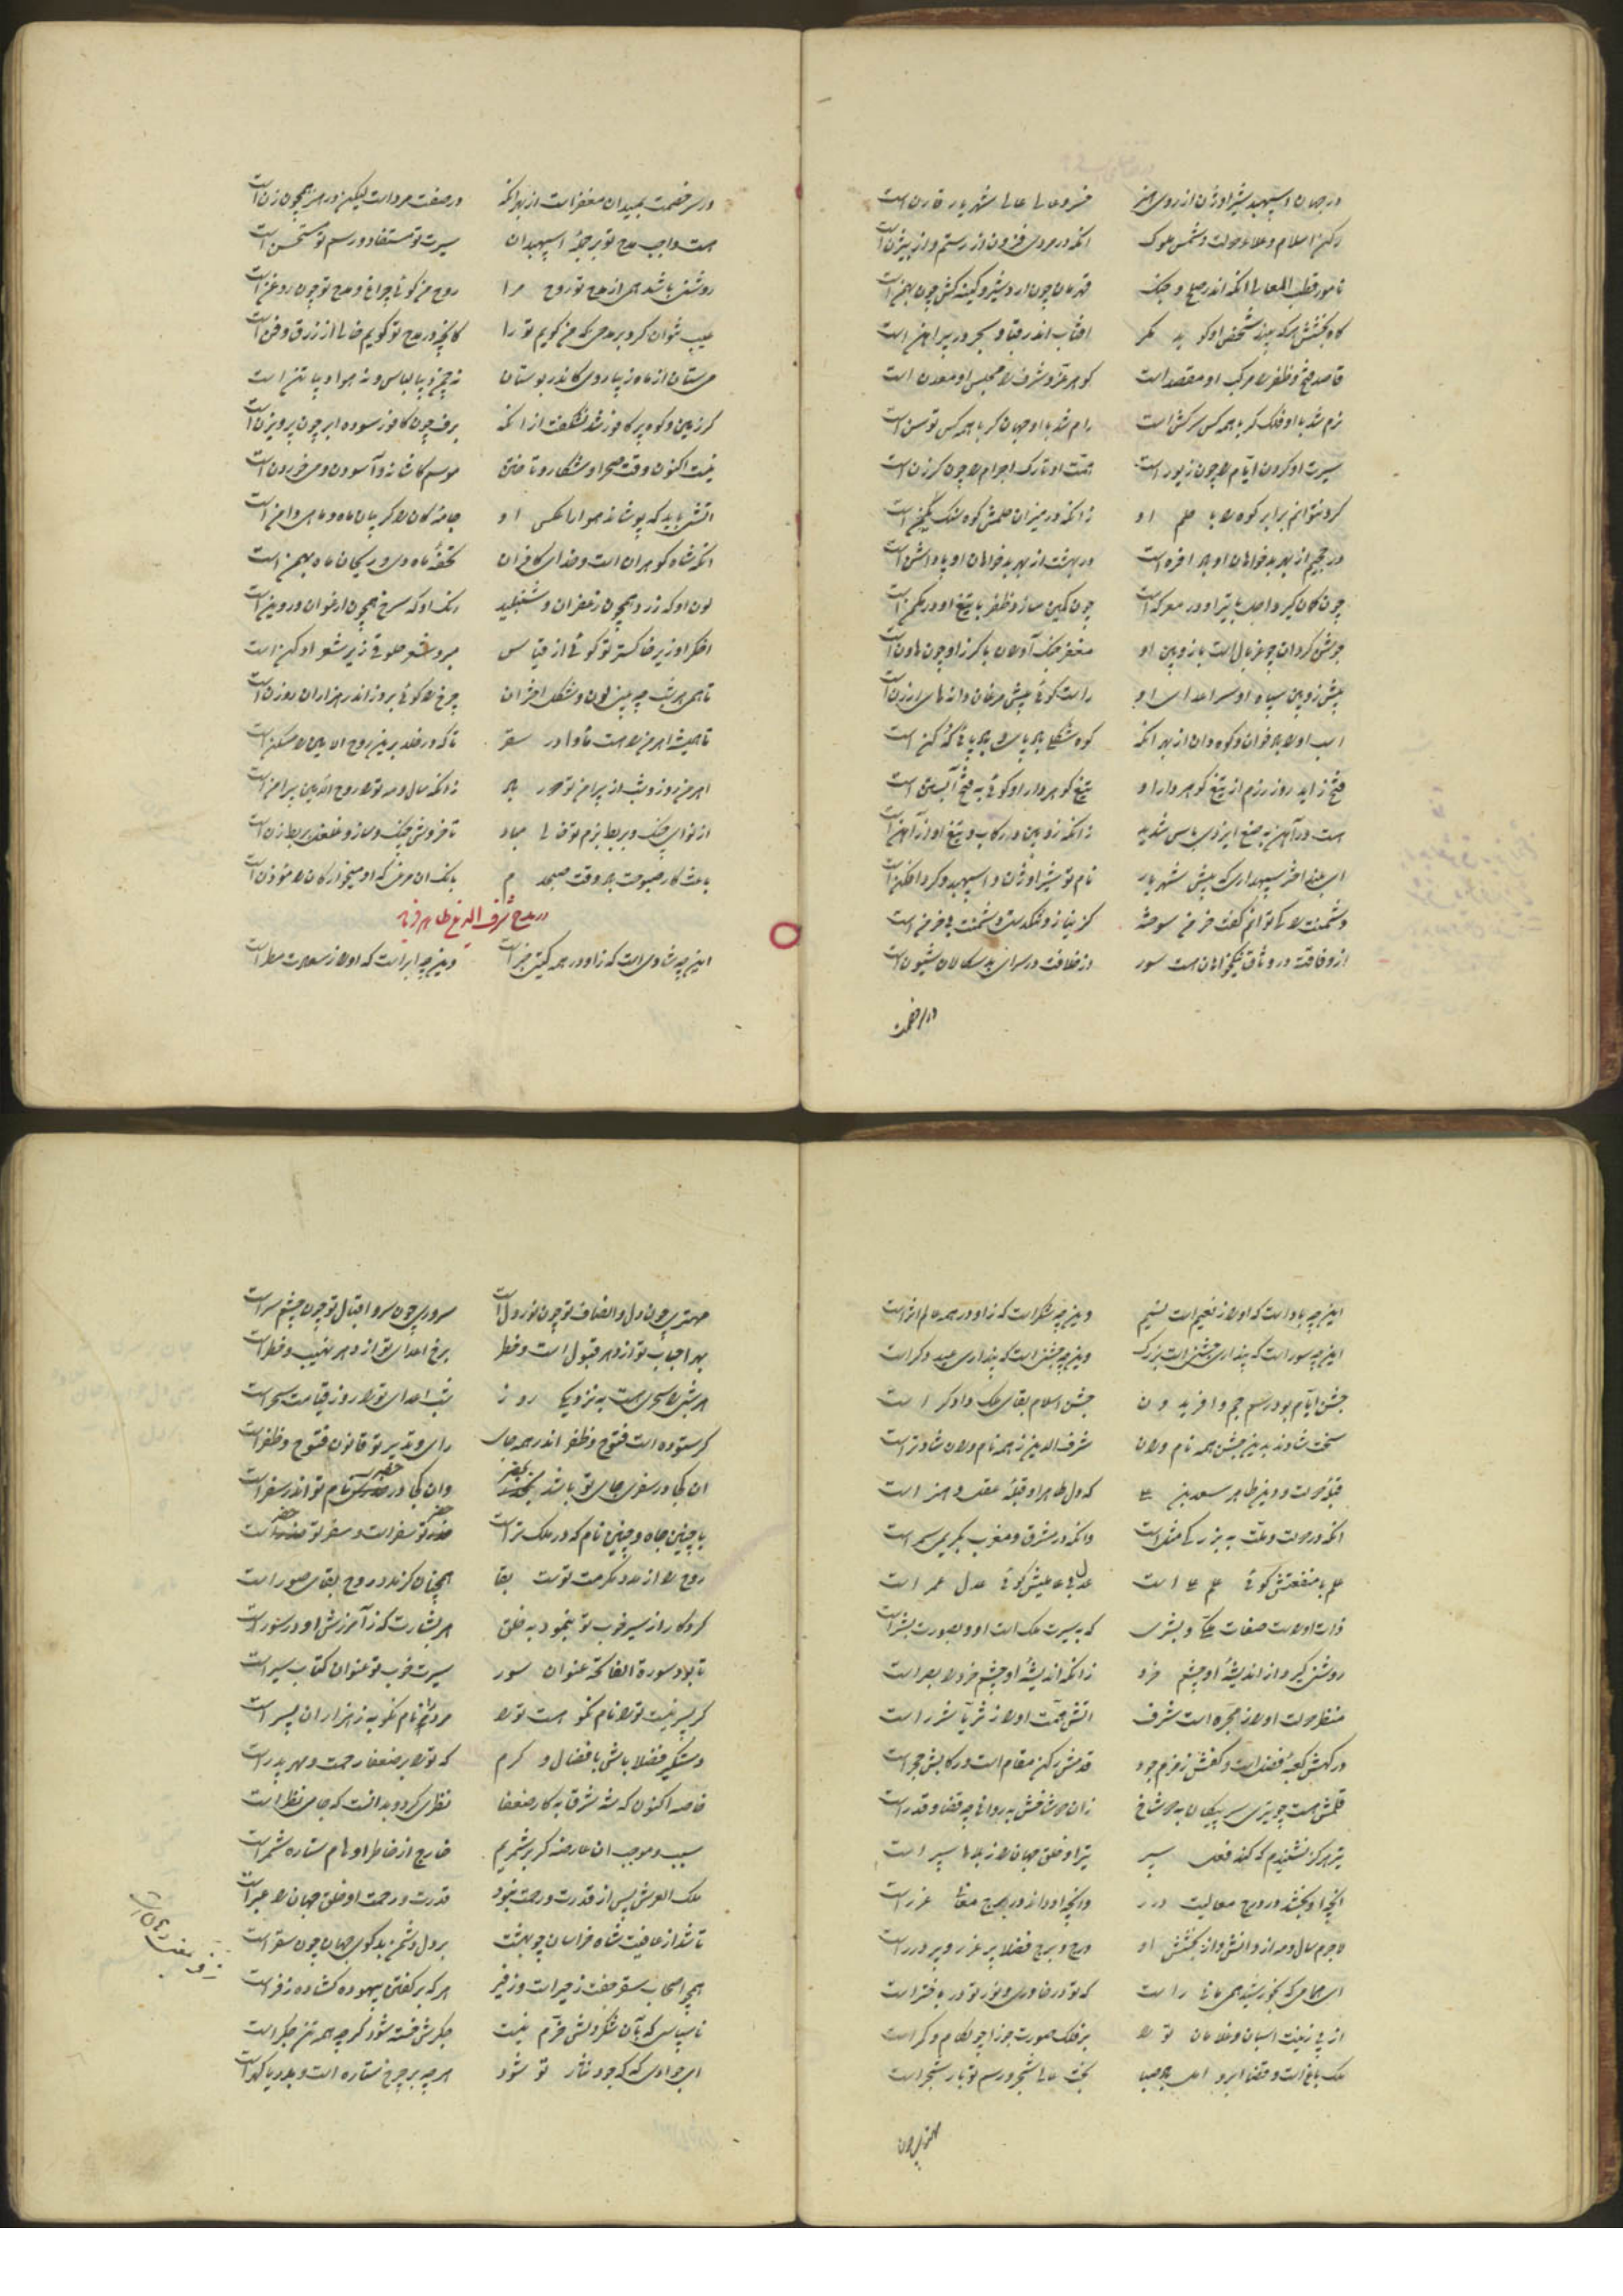 در جهان اسپهبد شیر اوژن از روی هنر خسرو عالی شهریار قارن است
رکن اسلام و علاء دولت و شمس ملوک انکه در مردی فزون از رستم و از بیژن است
نامور قطب المعالی انکه اندر صلح و جنک قهرمان چون اردشیر و کینه کش چون بهمن است
کاه بخشش هرکه بیند شخص او کوید مکر افتاب اندر قبا و بحر در پیراهن است
قاصد فتح و ظفر را مرکب او مقصد است کوهر عز و شرف را مجلس او معدن است
نرم شد با او فلک کر با همه کس سرکش است رام شد با او جهان کر با همه کس توسن است
سیرت او کردن ایام را چون زیور است همت او تارک اجرام را چون کرزن است
کرد نتوانم برابر کوه را با حلم او زانکه در میزان حلمش کوه سنک یکمن است
در جحیم از بهر بدخواهان او باد افره است در بهشت از بهر نیکخواهان او پاداشن است
چون کمان کیرد اجل با تیر او در معرکه است چون کمین سازد ظفر با تیغ او در مکمن است
جوشن کردان چو غربال است با زوبین او مغفر جنک آوران با کرز او چون هاون است
پیش زوبین سپاه او سر اعدای او راست کوئی پیش مرغان دانه های ارزن است
اسب او را باد خوان و کوه دان از بهر انکه کوه شکل باد پای و باد پای که کن است
فتح زاید روز رزم از تیغ کوهردار او تیغ کوهردار او کوئی به فتح آبستن است
هست در آهن به صنع ایزدی باس شدید زانکه زوبین و رکاب و تیغ او از آهن است
ای بلند اختر سپهداری که پیش شهریار نام تو شیر اوژن و اسپهبد و کرد افکن است
دشمنت را کی توانم کفت خرمن سوخته کز نیاز و تنکدستی دشمنت بی خرمن است
از وفاقت در وثاق نیکخواهان هست سور وز خلافت در سرای بدسکالان شیون است
در سر خصمت
در سر خصمت بمیدان مغفر است از بهر انکه در صفت مرد است لیکن در هنر همچون زن است
هست واجب مدح تو بر جملهٔ اسپهبدان سیرت تو مستفاد و رسم تو مستحسن است
روشنی باشد همی از مدح تو روح مرا روح من کوئی چراغ و مدح تو چون روغن است
عیب نتوان کرد بر مدحی که من کویم تو را کانچه در مدح تو کویم خالی از زرق و فن است
می ستان از ماه زیبا روی کاندر بوستان نه چمن دیبا لباس و نه هوا دیبا تن است
کر زمین و کوه پر کافور شد نشکفت از انکه برف چون کافور سوده ابر چون پرویزن است
نیست اکنون وقت صحرا و شکار و تاختن موسم کاشانه و آسودن و می خوردن است
اتشی باید که پوشاند هوا را عکس او جامهٔ کان را کریبان ماه و ماهی دامن است
انکه شاه کوهران است و خدای کافران تحفهٔ ماه دی و ریحان ماه بهمن است
لون او که زرد همچون زعفران و شنبلید رنک او که سرخ همچون ارغوان و روین است
اخکر او زیر خاکستر تو کوئی از قیاس
تا همی هر شب چه بینی لون و شکل اختران چرخ را کوئی بروز اندر هزاران روزن است
تا همیشه اهرمن را هست ماوا در سقر تا که در خلد برین روح الامین را مسکن است
اهرمن روز و شب از پیرامن تو دور باد زانکه سال و مه تو را روح الامین پیرامن است
از نوای چنک و بربط بزم تو خالی مباد تا خروش چنک و ساز و غلغل بربط زن است
باعث کار صبوحت باد وقت صبحدم بانک ان مرغی که او میخوارکان را مؤذن است
در مدح شرف الدین طاهر فرماید
این چه شادی است که زو در همه کیتی خبر است وین چه ابر است که او را ز سعادت مطر است
این چه باد است که او را ز نعیم است نسیم وین چه شکر است که زو در همه عالم اثر است
این چه سور است که پنداری جشنی است بزرک وین چه جشن است که پنداری عید دکر است
جشن ایام بود رسم جم و افریدون جشن اسلام بقای ملک دادکر است
سخت شادند بدین جشن همه نام وران شرف الدین ز همه نام وران شادتر است
قبلهٔ دولت و دین طاهر سعد بن علی که دل طاهر او قبلهٔ عقل و هنر است
انکه در دولت و ملت به بزرکی مثل است وانکه در مشرق و مغرب بکریمی سمر است
علم با منفعتش کوئی علم علی است عدل بی عایبش کوئی عدل عمر است
ذات او راست صفات ملکی و بشری که به سیرت ملک است او و بصورت بشر است
روشنی کیرد از اندیشهٔ او چشم خرد زانکه اندیشهٔ او چشم خرد را بصر است
منظر دولت او را ز مجره است شرف اتش همت او را ز ثریا شرر است
درکهش کعبهٔ فضل است و کفش زمزم جود قدمش رکن مقام است و رکابش حجر است
قلمش هست چو تیری سر پیکان به دو شاخ زان دو شاخش به روانی چو قضا و قدر است
تیر هرکز نشنیدم که کند فعل سپر تیر او خلق جهان را ز بلاها سپر است
انچه او بخشد در درج معالیت درر وانچه او داند در برج معانی غرر است
لاجرم سال و مه از دانش و از بخشش او درج و برج فضلا پر غرر و پر درر است
ای همامی که بخورشید همی مانی راست که تو در خاوری و نور تو در باختر است
از پی زینت اسبان و غلامان تو را بر فلک صورت جوزا چو لکام و کمر است
ملک باغ است و قضا ابر و امل باد صبا بخت عالی شجر و رسم تو بار شجر است
مهتری چون
مهتری چون دل و انصاف تو چون نور دل است سروری چون سر و اقبال تو چون چشم سر است
بهر احباب تو از دهر قبول است و خطر برخ اعدای تو از دهر نهیب و خطر است
هر شبی را سحری هست به نزدیکی روز شب اعدای تو را روز قیامت سحر است
کر ستوده است فتوح و ظفر اندر همه جای رای و تدبیر تو قانون فتوح و ظفر است
ان کجا در سفری جای تو باشد بحضر وان کجا در حضری نام تو اندر سفر است
با چنین جاه و چنین نام که در ملک تر است حضر تو سفر است و سفر تو حضر است
روح را از مدد مکرمت توست بقا همچنان کز مدد روح بقای صور است
کردکار از سیر خوب تو بنمود به خلق هر بشارت که ز آمرزش او در سور است
تا بود سورة الفاتحه عنوان سور سیرت خوب تو عنوان کتاب سیر است
کر پسر نیست تو را نام نکو هست تو را مرد را نام نکو به ز هزاران پسر است
دستکیر فضلا باش بافضال و کرم که تو را بر ضعفا رحمت و مهر پدر است
خاصه اکنون که شه شرق به کار ضعفا نظری کرد و بدانست که جای نظر است
سبب و موجب ان عارضه کر برشمریم خارج از خاطر و اوهام ستاره شمر است
ملک العرش پس از قدرت و رحمت بنمود قدرت و رحمت او خلق جهان را عبر است
تا شد از عافیت شاه خراسان چو بهشت بر دل دشمن بدکوی جهان چون سقر است
همچو اصحاب سقر جفت زحیر است و زفیر هرکه بر کفتن بیهوده کشاده زفر است
ناسپاسی که بآن شکر دلش خرم نیست جکرش خسته شود کرچه همه تن جکر است
ای جوادی که که جود نثار تو شود هرچه بر چرخ ستاره است و بدریا کهر است